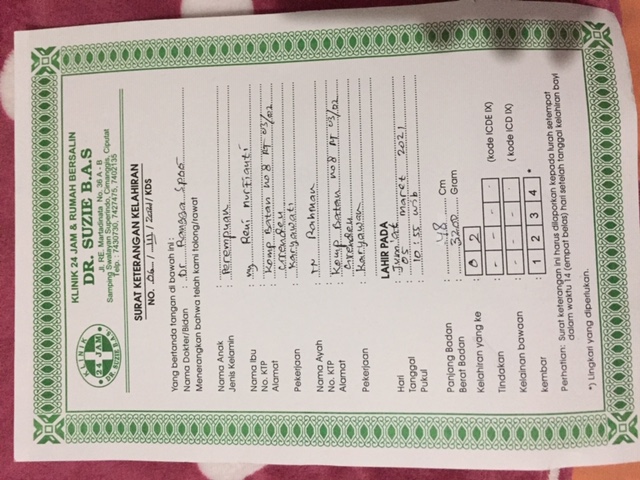 KLINIK
24 JAM
DR. SUZIE B.A.S
KLINIK 24 JAM & RUMAH BERSALIN
DR. SUZIE B.A.S
Jl. RE. Martadinata No. 36 A - B
Samping Swalayan Superindo, Cimanggis, Ciputat
Telp. : 7430730, 7427475, 7402135
SURAT KETERANGAN KELAHIRAN
NO. 06 / III / 2021 / KDS
Yang bertanda tangan di bawah ini :
Nama Dokter/Bidan : Dr Rangga SpOG
Menerangkan bahwa telah kami tolong/rawat
Nama Anak :
Jenis Kelamin : Perempuan
Nama Ibu : Ny Reni Nurfianti
No. KTP :
Alamat : Komp Batan no 8 RT 03/02
Cirendeu
Pekerjaan : Karyawati
Nama Ayah : TN Rahman
No. KTP :
Alamat : Komp Batan no 8 RT 03/02
Cirendeu
Pekerjaan : Karyawan
LAHIR PADA
Hari : Jum'at
Tanggal : 05 Maret 2021
Pukul : 10:55 wib
Panjang Badan : 48 Cm
Berat Badan : 3200 Gram
Kelahiran yang ke : 0 2
Tindakan : - - - - (kode ICDE IX)
Kelainan bawaan : - - - - ( kode ICD IX)
kembar : 1 2 3 4 *
Perhatian: Surat keterangan ini harus dilaporkan kepada lurah setempat
dalam waktu 14 (empat belas) hari setelah tanggal kelahiran bayi
*) Lingkari yang diperlukan.